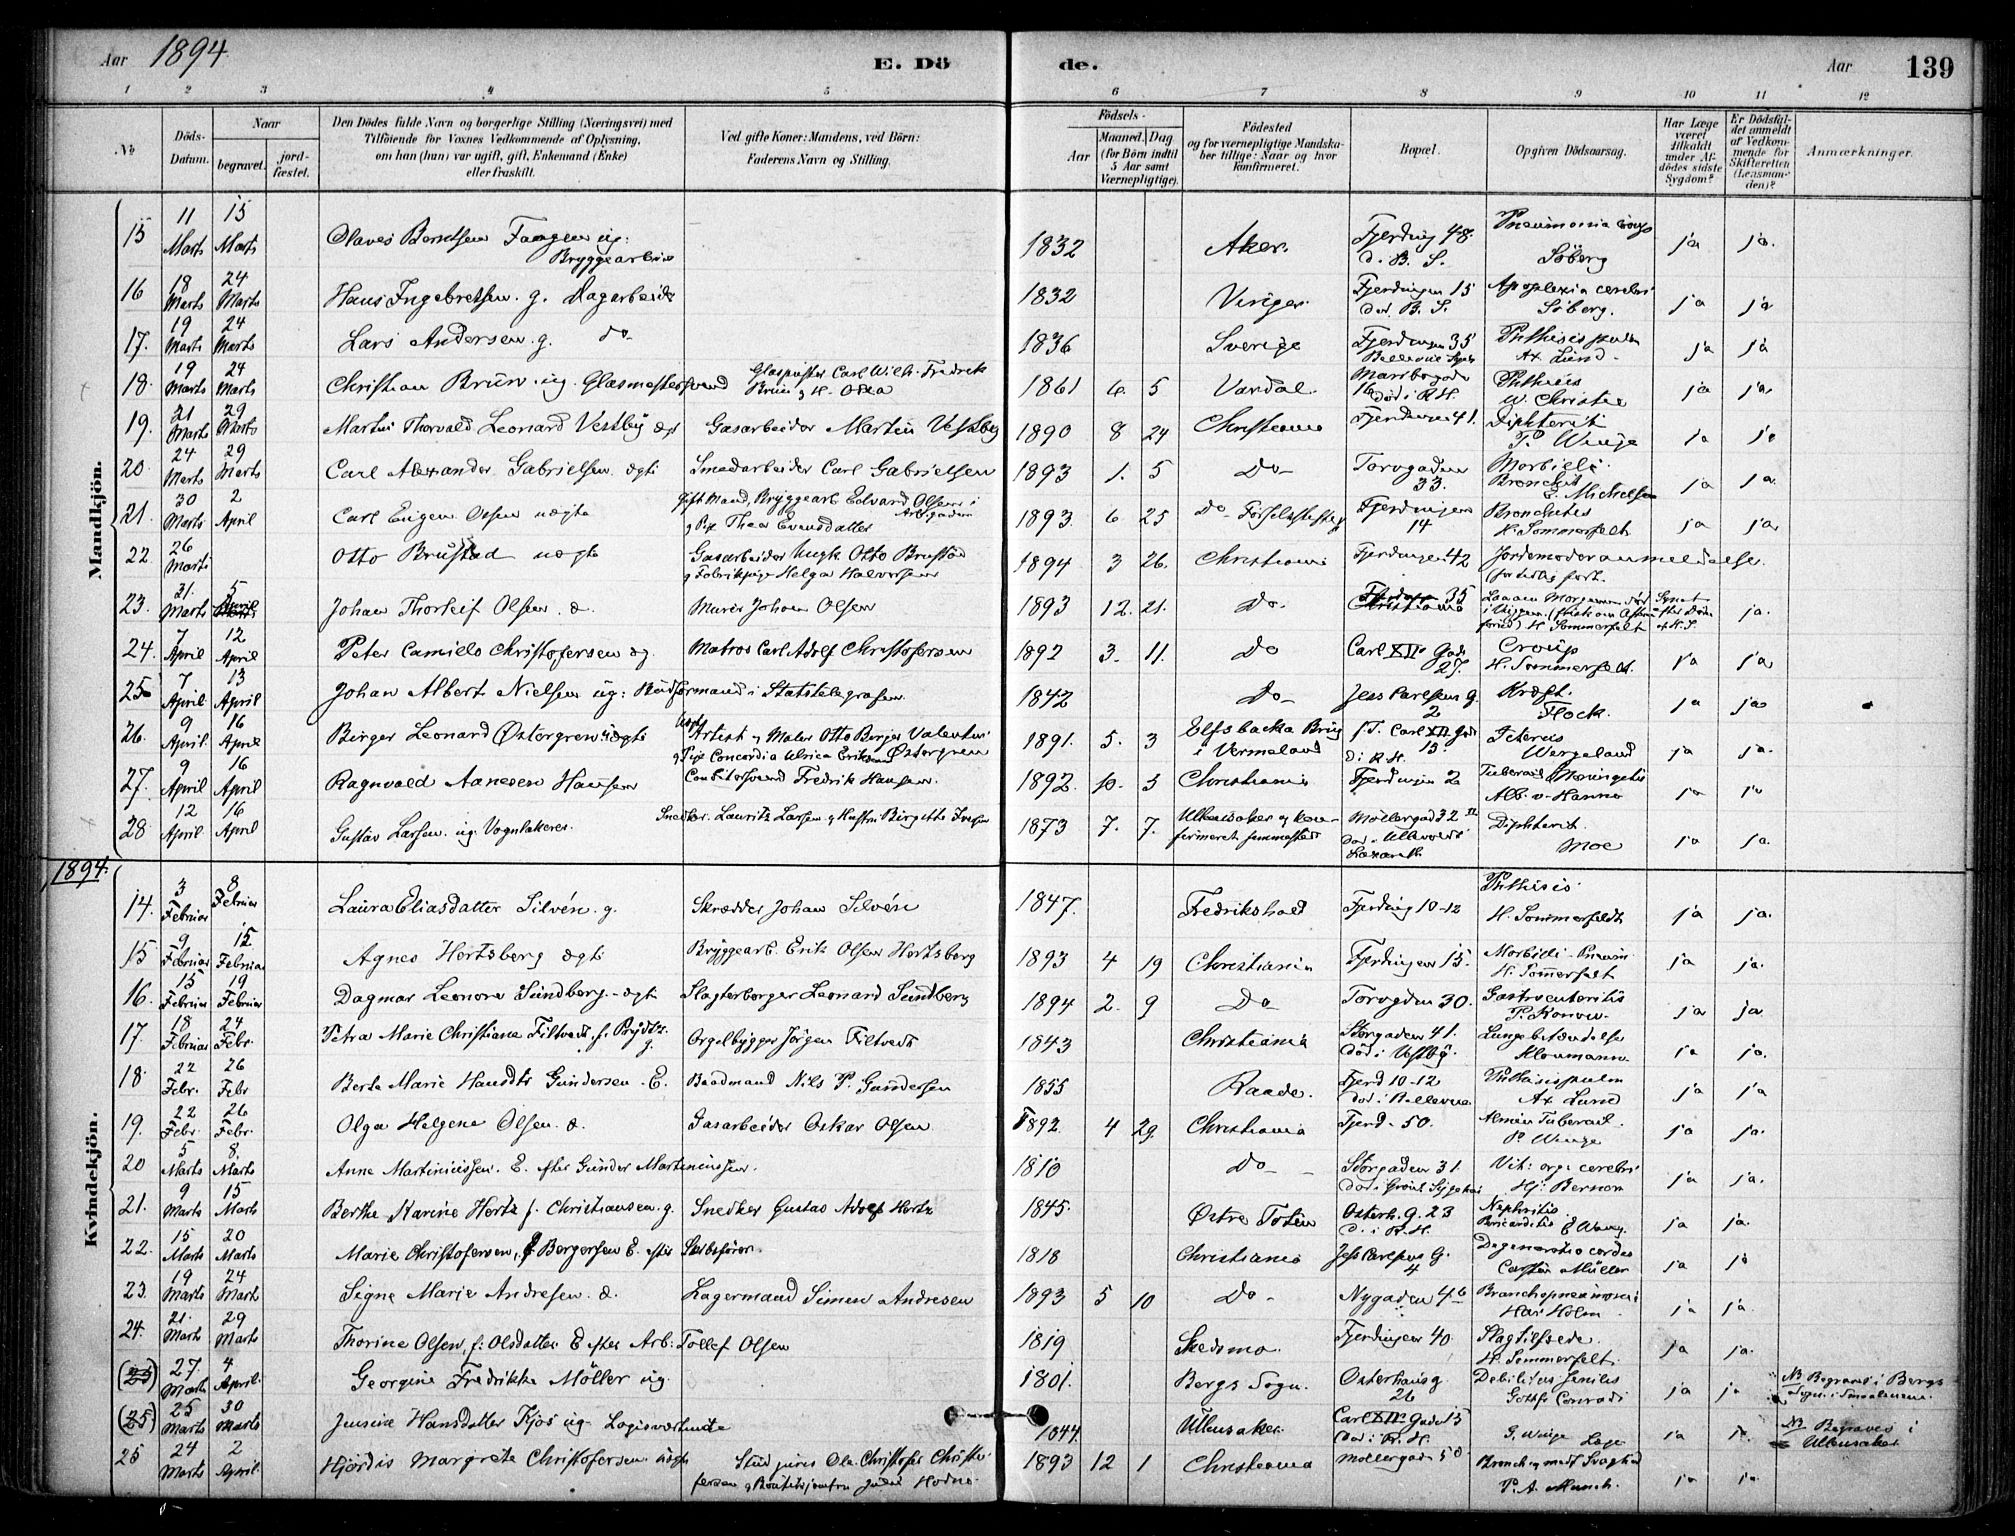 Aar 1894. E. Dö de. Aar 139
1 2 3 4 5 6 7 8 9 10 11 12
№ Döds-Datum. Naar begravet. jord-fæstet. Den Dödes fulde Navn og borgerlige Stilling (Næringsvei) med Tilföiende for Voxnes Vedkommende af Oplysning, om han (hun) var ugift, gift, Enkemand (Enke) eller fraskilt. Ved gifte Koner: Mandens, ved Börn: Faderens Navn og Stilling. Födsels- Aar Maaned. Dag (for Börn indtil 5 Aar samt Værnepligtige). Födested og for værnepligtige Mandskaber tillige: Naar og hvor konfirmeret. Bopæl. Opgiven Dödsaarsag. Har Læge været tilkaldt under Afdödes sidste Sygdom? Er Dödsfaldet anmeldt af Vedkommende for Skifteretten (Lensmanden)? Anmærkninger.
Mandkjön.
15 11 Marts 15 Marts Olaves Berntsen ug: Bryggearbeider 1832 Aker. Fjerding 48. d. B. S. Pneumonia Söberg ja ja.
16 18 Marts 24 Marts Hans Ingebretsen. g. Dagarbeider 1832 Fjerdingen 15 död. B. S. Apoplexia cerebri Söberg. ja ja
17. 19 Marts 24 Marts Lars Andersen. g. do 1836 Sverige Fjerdingen 35 Phthisis pulm Ax. Lund. ja ja
18. 19 Marts 24 Marts Christian Brun. ug. Glasmestersvend Carl Wilh. Fredrik Brun 1861 6. 5 Vardal. Maribogade 16 död i R.H. Phthisis W. Christie ja ja.
19. 21 Marts 29 Marts Martin Thorvald Leonard Vestby ægt Gasarbeider Martin Vestby 1890 8 24 Christiania Fjerdingen 41. Diphterit P. Winge ja ja
20. 24 Marts 29 Marts Carl Alexander Gabrielsen ægte Smedarbeider Carl Gabrielsen 1893 1. 5 Do Torvgaden 33. Morbilli. Bronchit E. Michelsen ja ja.
21. 30 Marts 2 April Carl Eugen Olsen uægte Gift Mand, Bryggearb. Edvard Olsen i g Pige Thea Evensdatter 1893. 6 25 Do Födselsstiftelse Fjerdingen 14 Bronchites H. Sommerfelt ja ja
22. 26 Marts Otto Brustad uægte Gasarbeider Ungk. Otto Brustad g Fabrikpige Helga Halvorsen 1894 3 26. Christiania Fjerdingen 42 Jordemoderanmeldelse.
23. 31. Marts 5 April Johan Thorleif Olsen. æ. Murer Johan Olsen 1893 12. 21. Do. 35 H Sommerfelt ja.
24. 7 April 12 April Peter Camillo Christofersen æg. Matros Carl Adolf Christofersen 1892 3. 11. Do Carl XII Gade 27. Croup H. Sommerfelt. ja ja
25 7 April 13 April Johan Albert Nielsen ug: Budformand i Statstelegrafen. 1842 Do Jess Carlsens g. 2 Kræft. Flock. ja ja
26. 9 April. 16 April Birger Leonard Östergren uægte Artist g Maler Otto Birger Valentin Östergren g Pige Concordia Ulrica Eriksen 1891. 5. 3 Elfsbacka Brug i Vermeland f.T. Carl XII Gade 15. d i R.H. Icterus Wergeland ja ja.
27. 9 April 16 April Ragnvald Aanesen Hansen Conditorsvend Fredrik Hansen. 1892. 10. 3 Christiania Fjerdingen 2 Tubercul. Meningitis Alb. v. Hanno ja ja
28. 12 April 16 April Gustav Larsen. ug. Vognlakerer. Snedker. Lauritz Larsen g Hustru Birgitte 1873 7. 7. Ullensaker g konfirmeret sammesteds Möllergad 32 död i Ullevolds Lazareth Diphterit. Moe ja ja.
1894.
Kvindekjön.
14. 3 Februar 8 Februar Laura Eliasdatter Silvén. g. Skrædder Johan Silvén 1847. Fredrikshald Fjerding 10-12 Phthisis. H. Sommerfeldt ja ja.
15 9 Februar 15 Februar Agnes Hertsberg ægte Bryggearb. Erik Olsen Hertsberg 1893 4 19 Christiania Fjerdingen 15. Morbilli. Pneum H. Sommerfelt ja ja.
16. 15 Februar 19 Februar Dagmar Leonora Sundberg. ægte Slagterborger Leonard Sundberg 1894 2. 9 Do Torvgden 30. Gastroenteritis P. Konow. ja ja.
17. 18 Februar 24 Febr. Petra Marie Christiane Filtvedt f. Prydtz. g. Orgelbygger Jörgen Filtvedt 1843 Christiania Storgaden 41. död i Vestby. Lungebetændelse Kloumann. ja ja.
18. 22 Febr. 26 Febr Berte Marie Hansdtr Gundersen. E. Baadmand Nils P. Gundersen 1855 Raade. Fjerd 10-12 död i Bellevue Phthisis pulm Ax Lund ja ja
19. 22 Febr. 26 Febr. Olga Helgene Olsen. æ. Gasarbeider Oskar Olsen 1892. 4 29. Christiania Fjerd. 50. Almen Tubercul. P Winge ja ja.
20 5 Marts 8. Marts Anne Martiniussen. E. efter Gunder Martiniussen. 1810 Do Storgaden 31. Vit: org: cerebri Hj: Berner ja ja.
21. 9 Marts 15 Marts Berthe Karine Hertz f. Christiansen. g. Snedker Gustav Adolf Hertz 1845. Östre Toten Osterh. g. 23 d. i R. H. Nephritis. Pericarditis ja ja.
22. 15 Marts 20 Marts Marie Christofersen, f Borgersen E. efter Skibsförer. 1818 Christiania Jess Carlsens G. 4 Degeneratio cordis Carsten Müller ja ja
23. 19 Marts 24 Marts Signe Marie Andresen. æ. Lagermand Simen Andresen 1893 5 10 Do. Nygaden 46 Bronchopneumoni Holm ja ja.
24. 21. Marts 29 Marts Thorine Olsen, f: Olsdatter E efter Arb: Tollef Olsen 1819 Skedsmo. Fjerdingen 40. Slagtilfælde. H. Sommerfelt. ja ja.
(25) 27 Marts 4 April. Georgine Fredrikke Möller ug. 1801. Bergs Sogn. Osterhausg 26 Debilitas senilis Gottfr Conradi ja ja NB Begraves i Bergs Sogn i Smaalenene.
(25) 25 Marts 30 Marts Jensine Hansdatter Kjos ug. Logisværtinde 1844. Ullensaker Carl XII Gade 15 död i R. H. G. Winge Læge ja ja. NB Begraves i Ullensaker
25 24 Marts 2 April. Hjördis Margrete Christofersen uægte Stud juris Ole Christofer Christofersen 1893 12 1 Christiania Möllergad 50 P. A. Munch. ja ja.